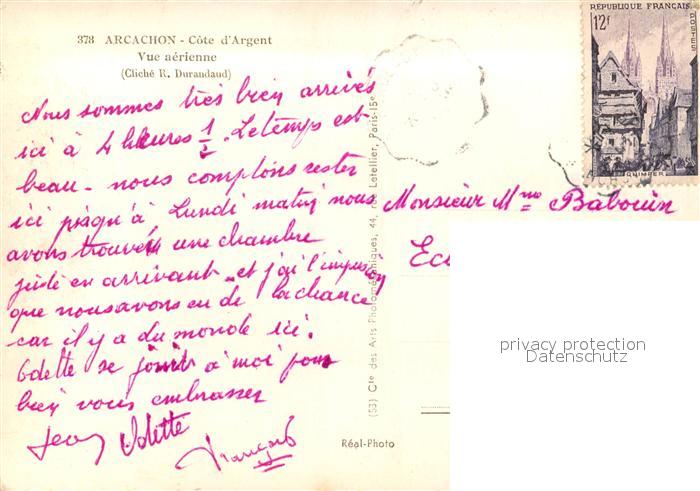 378 ARCACHON - Côte d'Argent
Vue aérienne
(Cliché R. Durandaud)
Nous sommes très bien arrivés
ici à 4 heures 1/2. Le temps est
beau - nous comptons rester
ici jusqu'à Lundi matin nous
avons trouvés une chambre
juste en arrivant et j'ai l'impression
que nous avons eu de la chance
car il y a du monde ici.
Odette se joint à moi pour
bien vous embrasser
Jean Odette
François
Réal-Photo
(53) Cie des Arts Photomécaniques, 44, rue Letellier, Paris-15e
RÉPUBLIQUE FRANÇAISE
12F
POSTES
QUIMPER
Monsieur Mme Babouin
privacy protection
Datenschutz